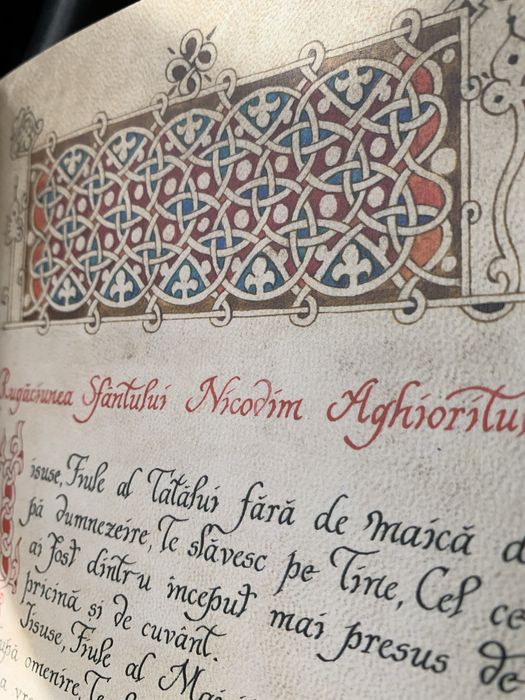 Rugăciunea Sfântului Nicodim Aghioritu
Iisuse, Fiule al Tatălui fără de maică d
pă dumnezeire, Te slăvesc pe Tine, Cel ce
ai fost dintru început mai presus de
pricină și de cuvânt.
Iisuse, Fiule al Mai
omenire, Te